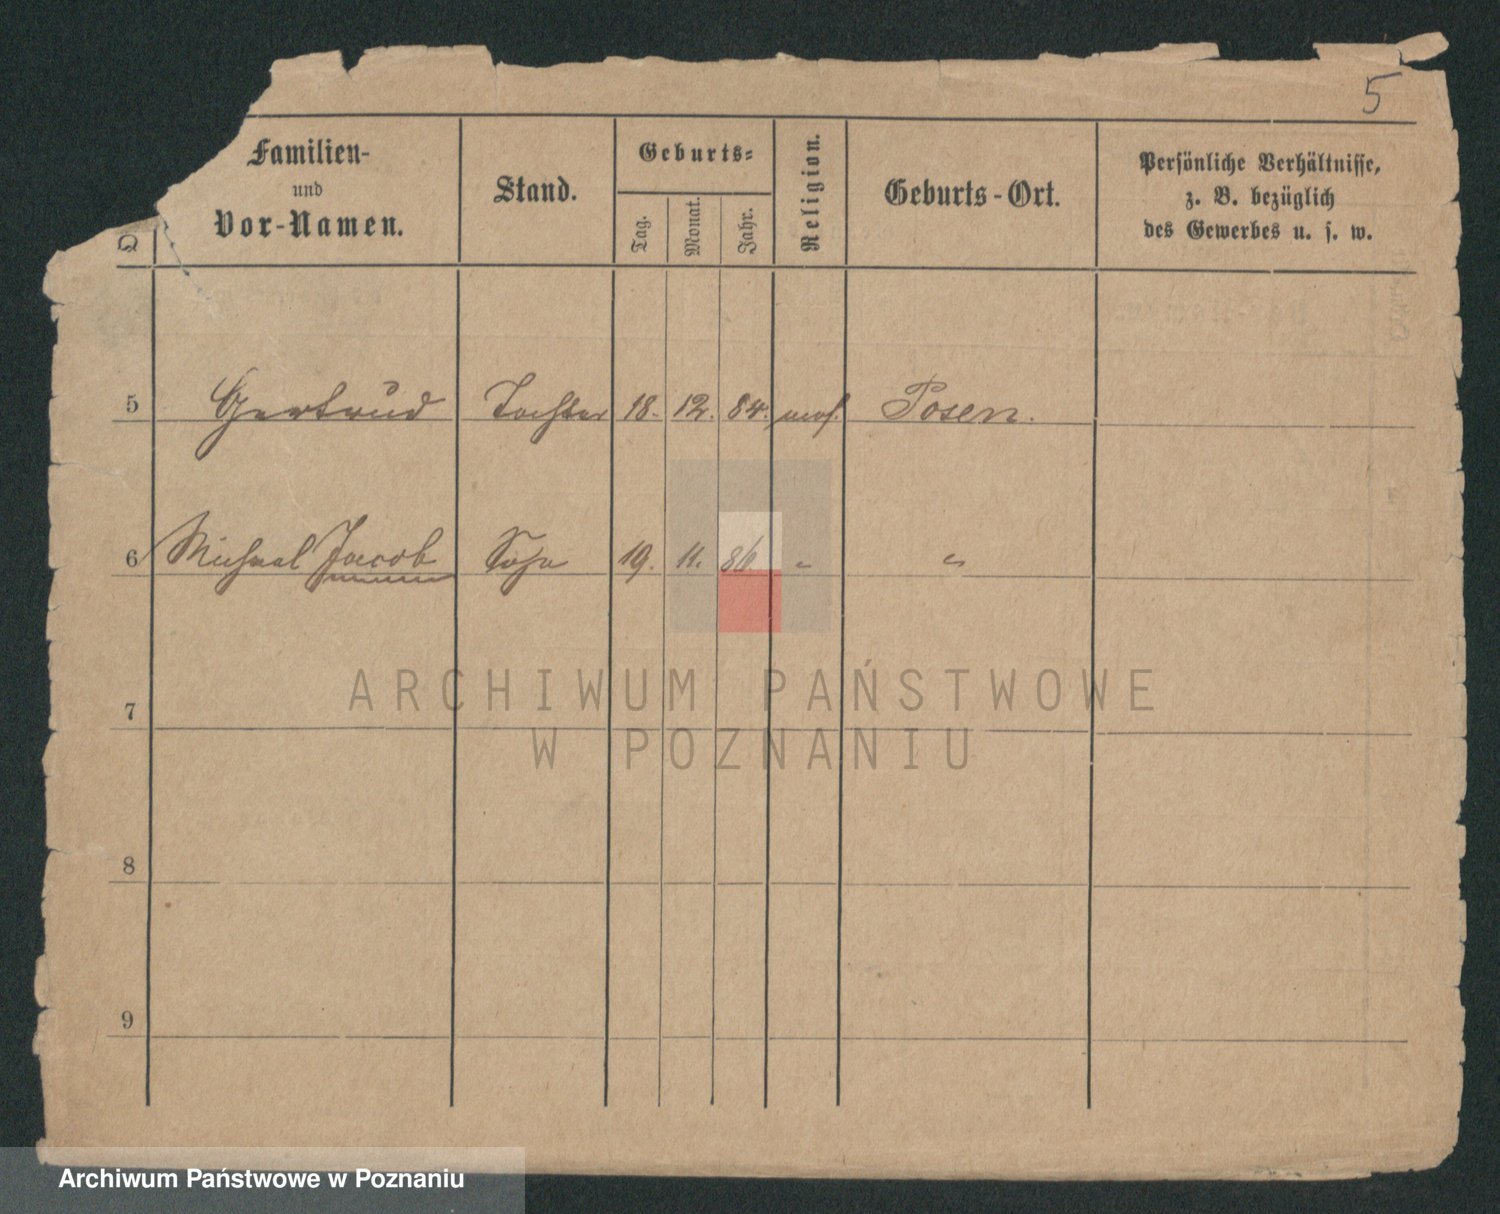 5
Familien-
und
Vor-Namen.
Stand.
Geburts-
Tag.
Monat.
Jahr.
Religion.
Geburts-Ort.
Persönliche Verhältnisse,
z. B. bezüglich
des Gewerbes u. s. w.
5 Gertrud Tochter 18. 12. 84. mos. Posen.
6 Michael Jacob Sohn 19. 11. 86. " "
ARCHIWUM PAŃSTWOWE
W POZNANIU
7
8
9
Archiwum Państwowe w Poznaniu